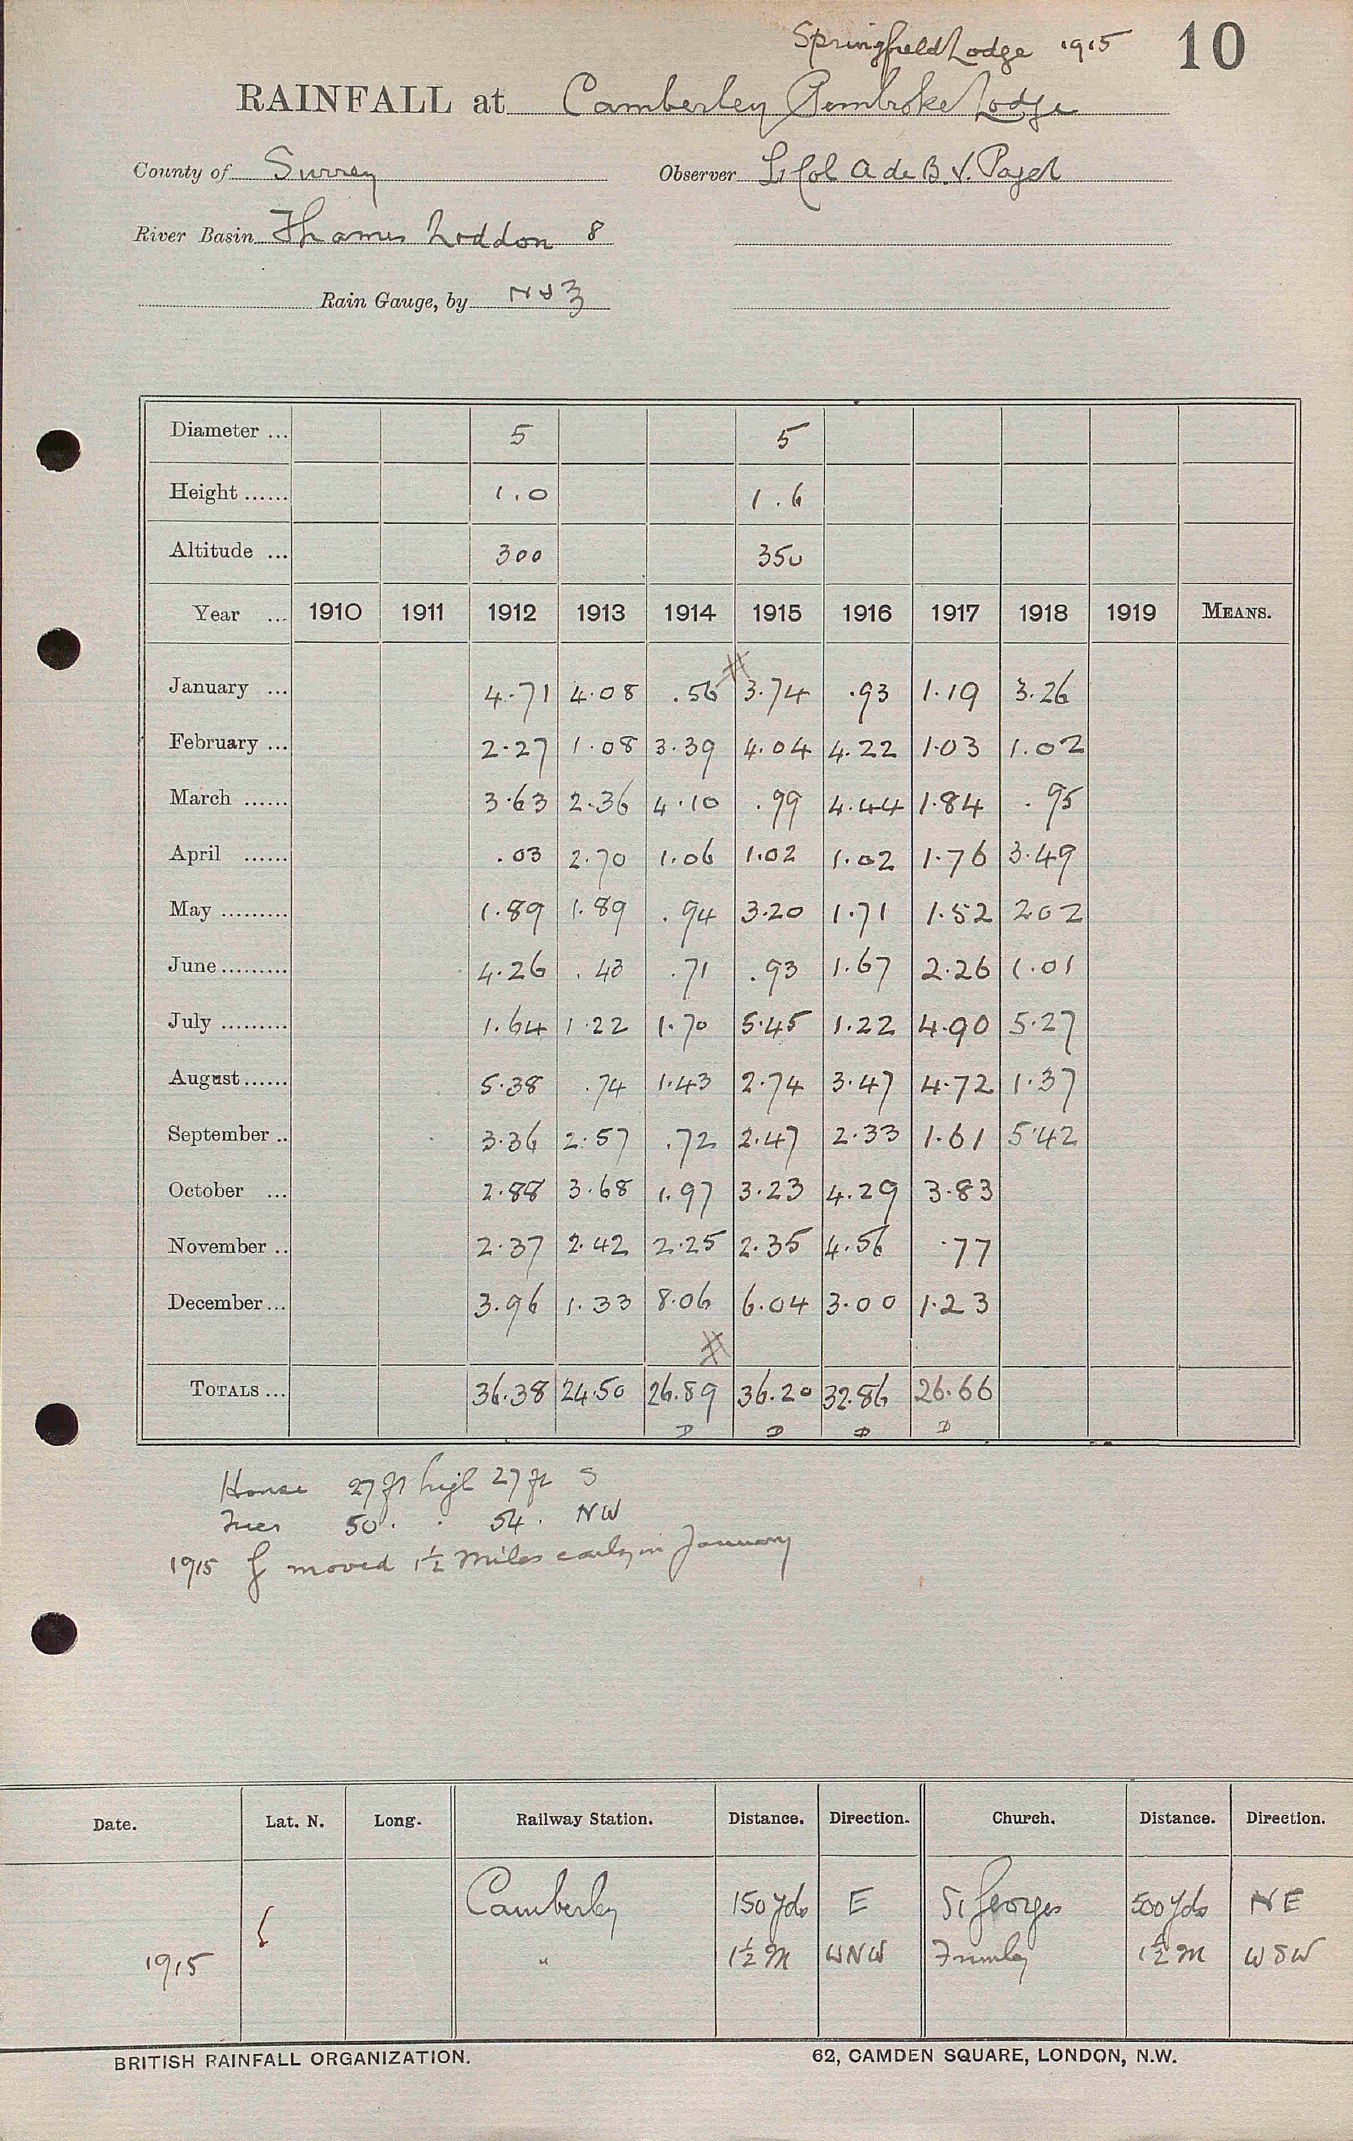 Springfield Lodge 1915 10
RAINFALL at Camberley Pembroke Lodge
County of Surrey Observer Lt Col A de B. V. Paget
River Basin Thames Loddon 8
Rain Gauge, by N & Z
Diameter ... 5 5
Height ...... 1.0 1.6
Altitude ... 300 350
Year ... 1910 1911 1912 1913 1914 1915 1916 1917 1918 1919 MEANS.
January ... 4.71 4.08 .56 3.74 .93 1.19 3.26
February ... 2.27 1.08 3.39 4.04 4.22 1.03 1.02
March ...... 3.63 2.36 4.10 .99 4.44 1.84 .95
April ...... .03 2.70 1.06 1.02 1.02 1.76 3.49
May ......... 1.89 1.89 .94 3.20 1.71 1.52 2.02
June ......... 4.26 .43 .71 .93 1.67 2.26 1.01
July ......... 1.64 1.22 1.70 5.45 1.22 4.90 5.27
August ...... 5.38 .74 1.43 2.74 3.47 4.72 1.37
September .. 3.36 2.57 .72 2.47 2.33 1.61 5.42
October ... 2.88 3.68 1.97 3.23 4.29 3.83
November .. 2.37 2.42 2.25 2.35 4.56 .77
December ... 3.96 1.33 8.06 6.04 3.00 1.23
TOTALS ... 36.38 24.50 26.89 36.20 32.86 26.66
D D D D
House 27 ft high 27 ft S
Trees 50 . . 54 . NW
1915 G moved 1½ miles early in January
Date. Lat. N. Long. Railway Station. Distance. Direction. Church. Distance. Direction.
Camberley 150 yds E St Georges 500 yds NE
1915 " 1½ M WNW Frimley 1½ M WSW
BRITISH RAINFALL ORGANIZATION. 62, CAMDEN SQUARE, LONDON, N.W.